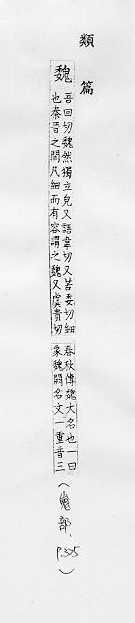 類篇
魏 吾回切魏然獨立皃又語韋切又苦委切細
也秦晉之間凡細而有容謂之魏又虞貴切
春秋傳魏大名也一曰
象魏闕名文一重音三
(嵬部、P.325)